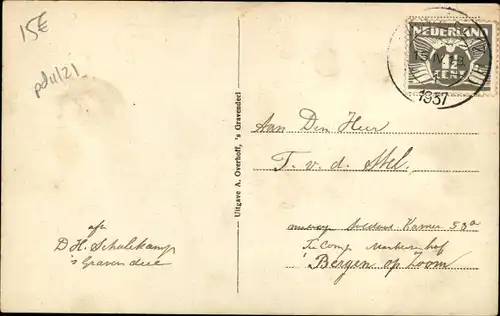 15€
pdu/21
NEDERLAND
1½
CENT
1937
Uitgave A. Overhoff, 's Gravendeel
Aan Den Heer
T. v. d. Stel.
Kamer 58a
Bergen op Zoom
afz
D.H. Schalekamp
's Gravendeel